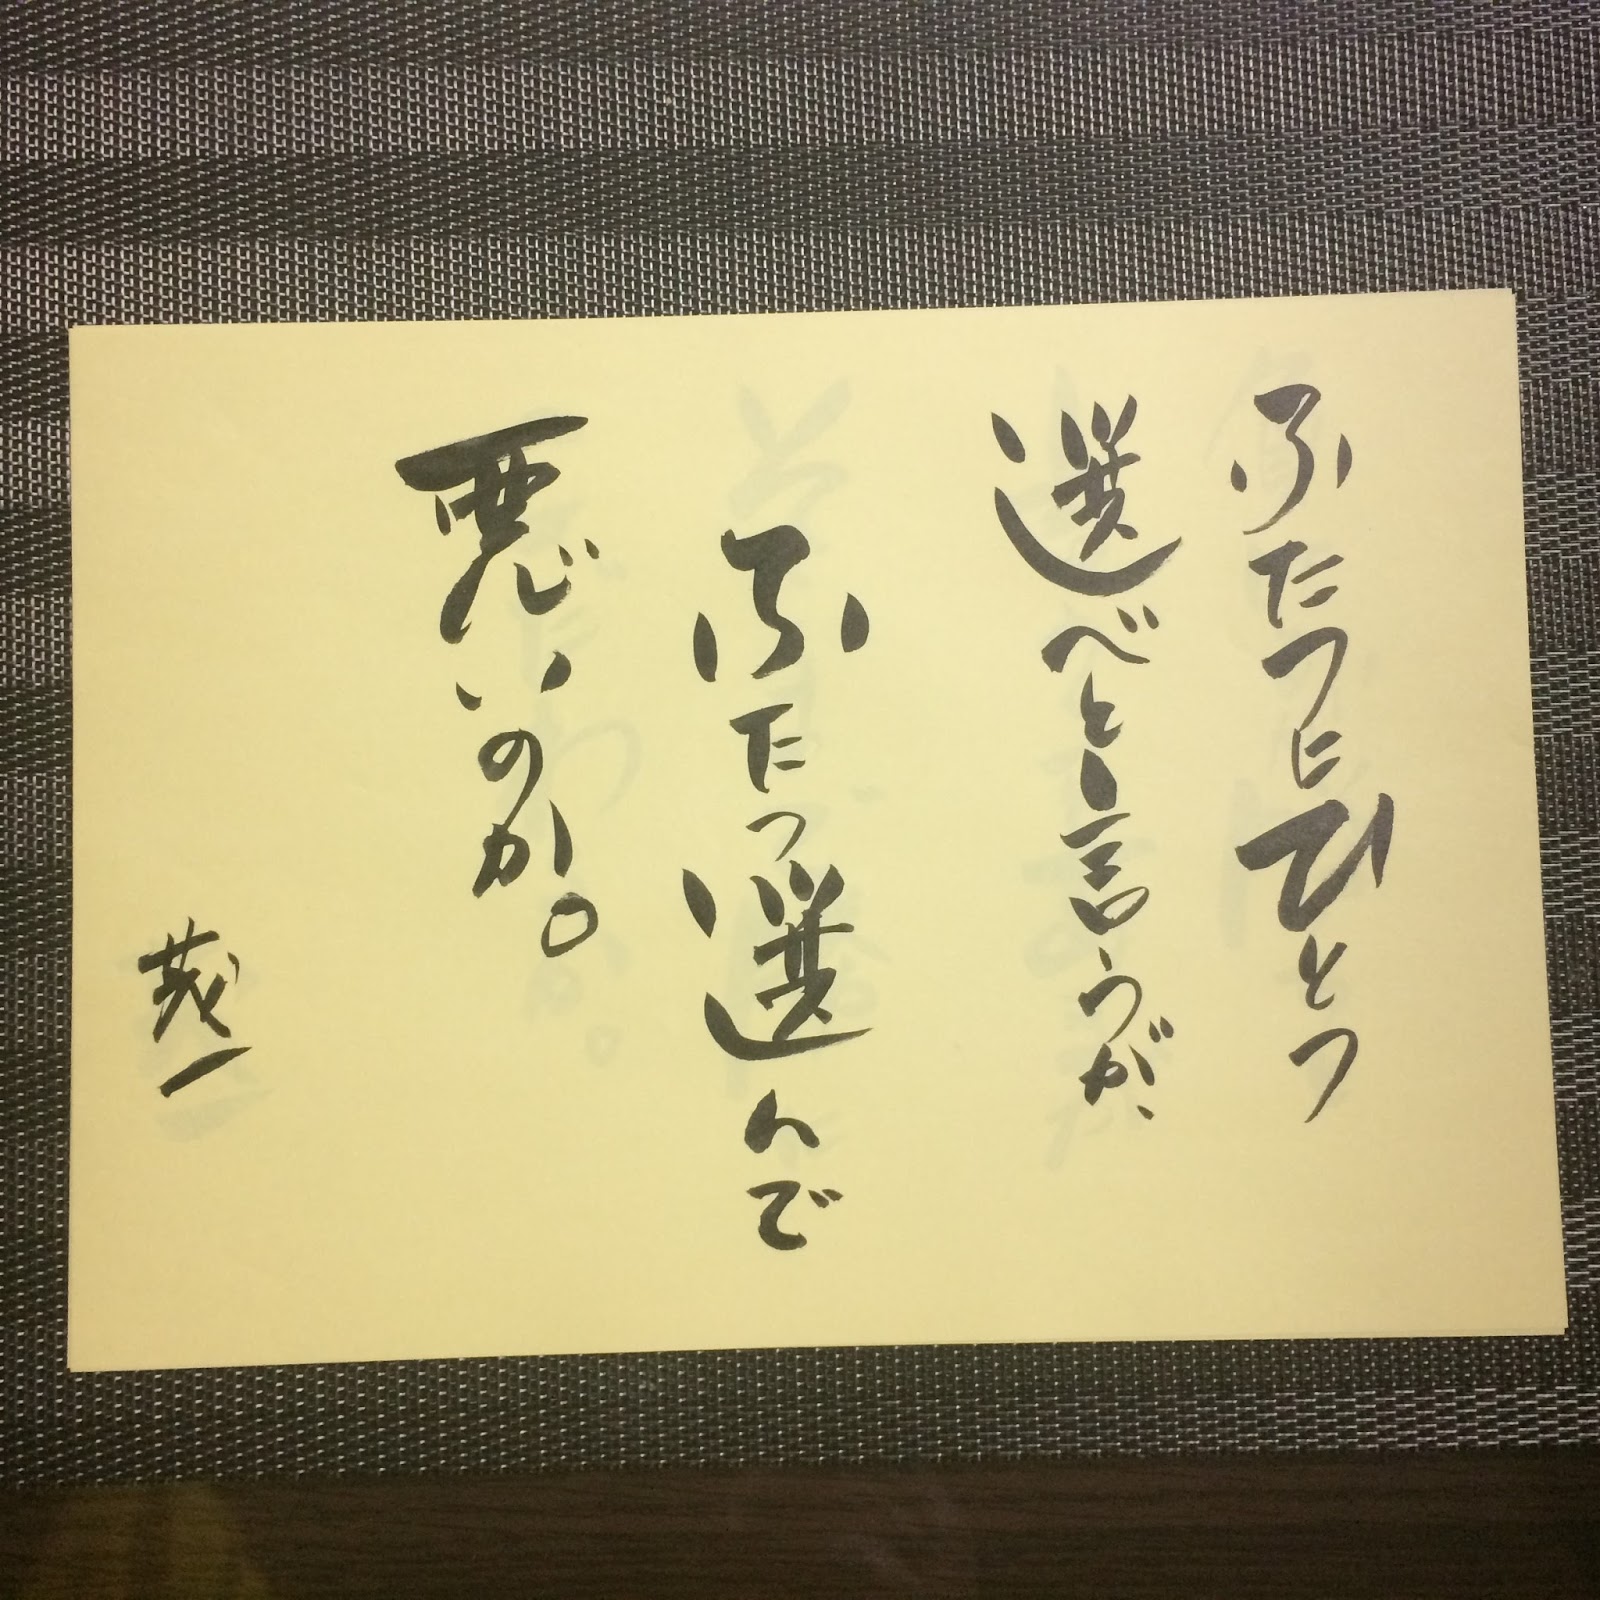 ふたつにひとつ
選べと言うが、
ふたつ選んで
悪いのか。
茂一